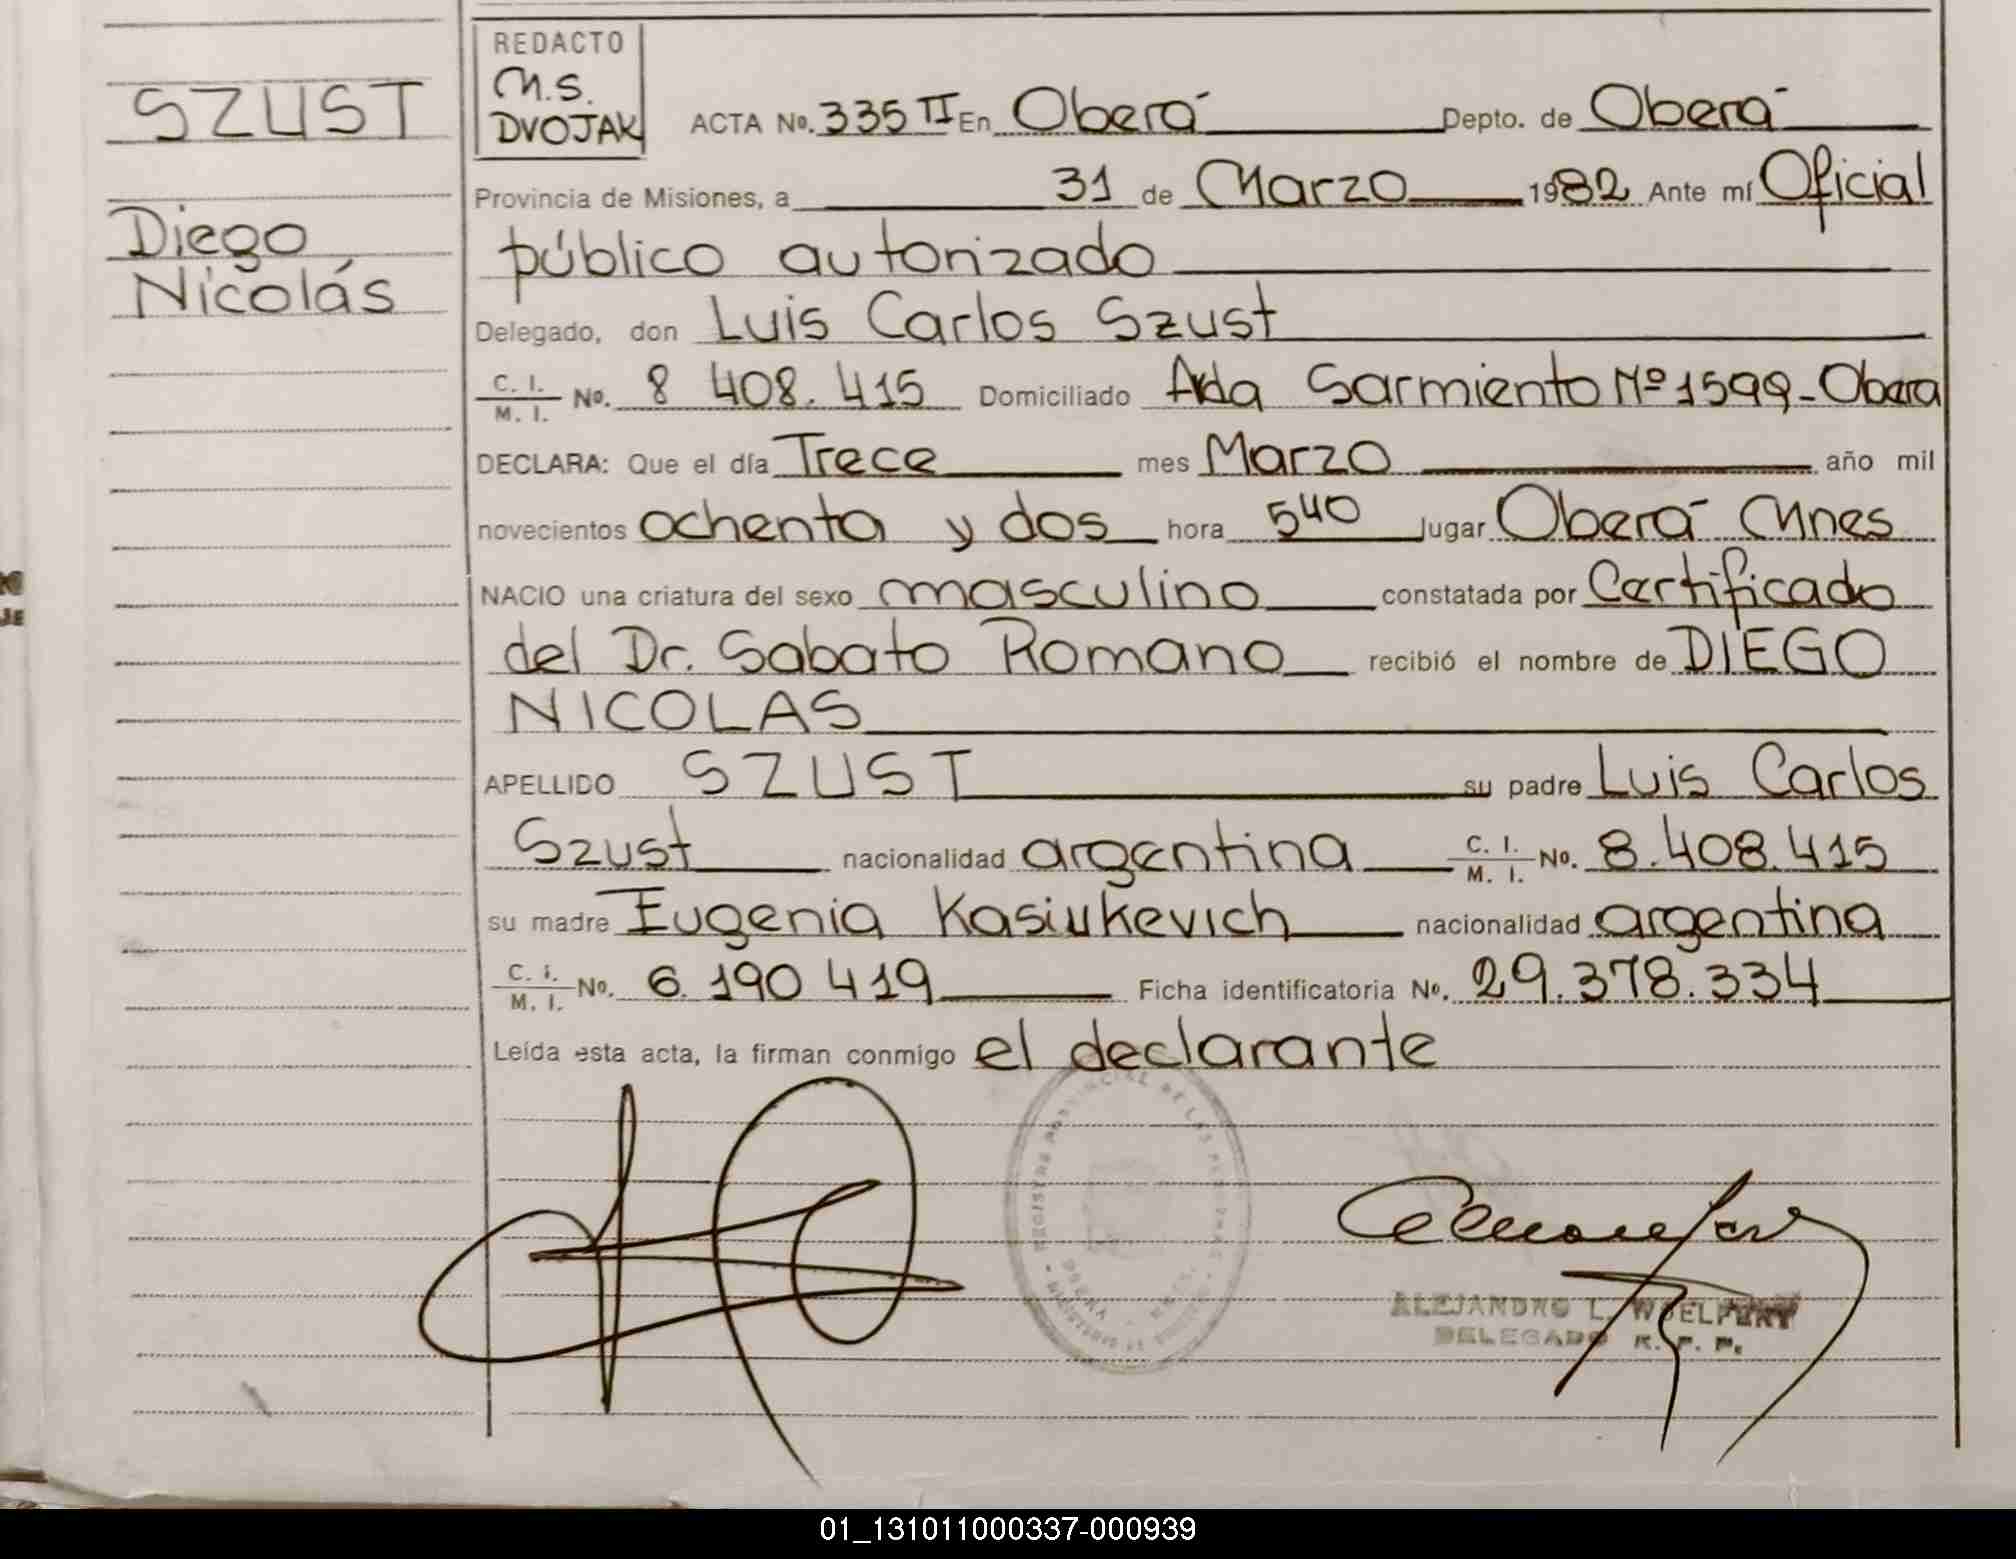 SZUST
Diego
Nicolás
REDACTO
M.S.
DVOJAK
ACTA No. 335 II En Oberá Depto. de Oberá
Provincia de Misiones, a 31 de Marzo 1982 Ante mí Oficial
público autorizado
Delegado, don Luis Carlos Szust
C. I. / M. I. No. 8 408.415 Domiciliado Avda Sarmiento Nº 1599-Obera
DECLARA: Que el día Trece mes Marzo año mil
novecientos ochenta y dos hora 540 lugar Oberá Mnes
NACIO una criatura del sexo masculino constatada por Certificado
del Dr. Sabato Romano recibió el nombre de DIEGO
NICOLAS
APELLIDO SZUST su padre Luis Carlos
Szust nacionalidad argentina C. I. / M. I. No. 8.408.415
su madre Eugenia Kasiukevich nacionalidad argentina
C. I. / M. I. No. 6.190 419 Ficha identificatoria No. 29.378.334
Leída esta acta, la firman conmigo el declarante
REGISTRO PROVINCIAL DE LAS PERSONAS
ALEJANDRO L.
DELEGADO R. P. P.
01_131011000337-000939